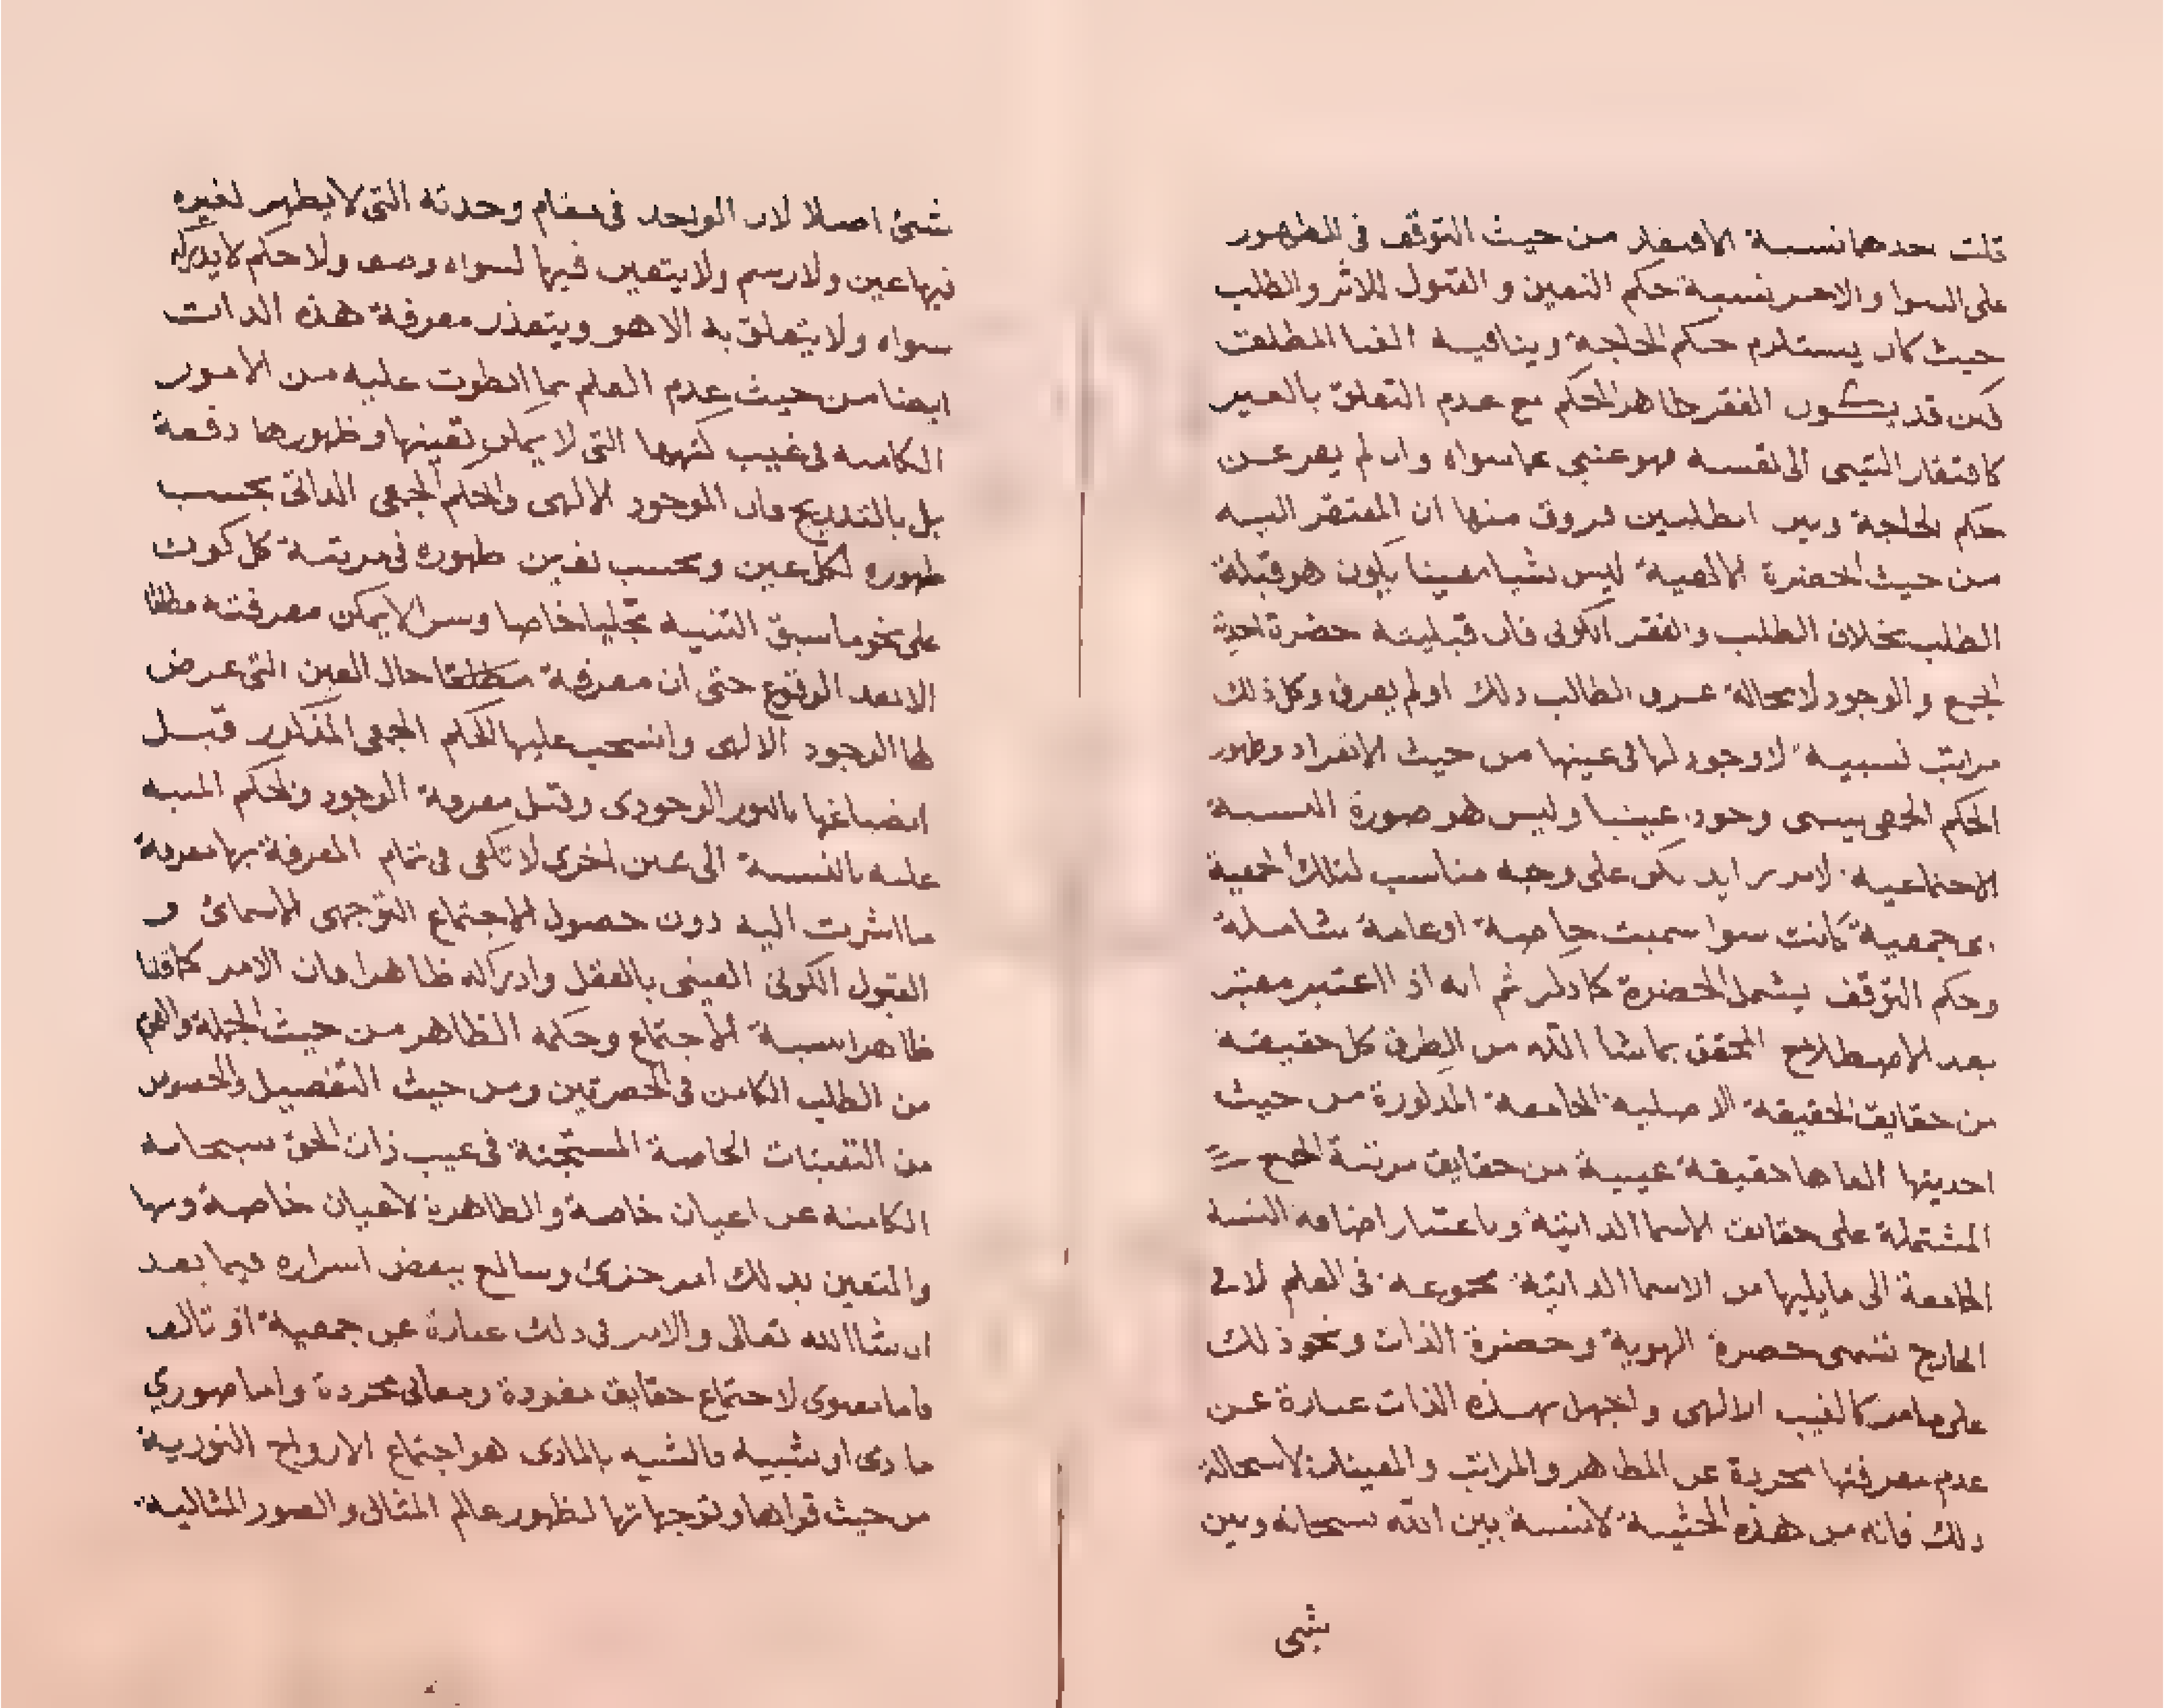 قلت احدهما نسبة الافتقار من حيث التوقف فى الظهور
على السوا والاخر نسبة حكم التعين والقبول للاثر والطلب
حيث كان يستلزم حكم الحاجة وينافيه الغنا المطلق
لكن قد يكون الفقر ظاهر الحكم مع عدم التعلق بالغير
كافتقار الشى الى نفسه فهو غنى عما سواه وان لم يعر عن
حكم الحاجة وبين الطلبين فروق منها ان المفتقر اليه
من حيث الحضرة الالهية ليس شيا معينا يكون هو قبلة
الطلب بخلاف الطلب والفقر الكونى فان قبلته حضرة احدية
الجمع والوجود لا محالة عرف الطالب ذلك او لم يعرف وكل ذلك
مراتب نسبية لا وجود لها فى عينها من حيث الانفراد وظهور
الحكم الجمعى يسمى وجودا عينيا وليس هو صورة النسبة
الاجتماعية لامر زايد لكن على وجه مناسب لتلك الجمعية
اى جمعية كانت سوا سميت خاصة او عامة شاملة
وحكم التوقف يشمل الحضرة كما ذكر ثم انه اذا اعتبر معتبر
بعد الاصطلاح المحقق بما شا الله من الطرق كل حقيقة
من حقايق الحقيقة الاصلية الجامعة المذكورة من حيث
احديتها الفاها حقيقة غيبية من حقايق مرتبة الجمع
المشتملة على حقايق الاسما الذاتية وباعتبار اضافة النسبة
الجامعة الى ما يليها من الاسما الذاتية مجموعة فى العلم لا فى
الخارج تسمى حضرة الهوية وحضرة الذات ونحو ذلك
على ما مر كالغيب الالهى والجهل بهذه الذات عبارة عن
عدم معرفتها مجردة عن المظاهر والمراتب والمعينات لاستحالة
ذلك فانه من هذه الحيثية لا نسبة بين الله سبحانه وبين
شى
شئ اصلا لان الواحد فى مقام وحدته التى لا يظهر لغيره
فيها عين ولا رسم ولا يتعين فيها لسواه وصف ولا حكم لا يدركه
سواه ولا يتعلق به الا هو ويتعذر معرفة هذه الذات
ايضا من حيث عدم العلم بما انطوت عليه من الامور
الكامنة فى غيب كنهها التى لا يمكن تعينها وظهورها دفعة
بل بالتدريج فان الموجود الالهى والحكم الجمعى الذاتى بحسب
ظهوره لكل عين وبحسب تعين ظهوره فى مرتبة كل كون
على نحو ما سبق التنبيه تجليا خاصا وسرا لا يمكن معرفته مطلقا
الا بعد الوقوع حتى ان معرفة مطلقا حال العين التى عرض
لها الوجود الالهى وانسحب عليها الحكم الجمعى المذكور قبل
انصباغها بالنور الوجودى وقبل معرفة الوجود والحكم المنبه
عليه بالنسبة الى عين اخرى لا تكفى فى تمام المعرفة بها معرفة
ما اشرت اليه دون حصول الاجتماع التوجهى الاسمائ و
القبول الكونى العينى بالفعل وادراكه ظاهرا فان الامر كما قلنا
ظاهرا نسبة الاجتماع وحكمه الظاهر من حيث الجملة والعموم
من الطلب الكامن فى الحضرتين ومن حيث التفصيل والخصوص
من التعينات الخاصة المستجنة فى غيب ذات الحق سبحانه
الكامنة عن اعيان خاصة والظاهرة لاعيان خاصة وبها
والتعين بذلك امر جزئ وسالمع ببعض اسراره فيما بعد
ان شا الله تعالى والامر فى ذلك عبارة عن جمعية او تالف
فاما معنوى لاجتماع حقايق مفردة ومعانى مجردة واما صورى
مادى او شبيه فالشبيه بالمادى هو اجتماع الارواح النورية
من حيث قواها وتوجهاتها لظهور عالم المثال والصور المثالية